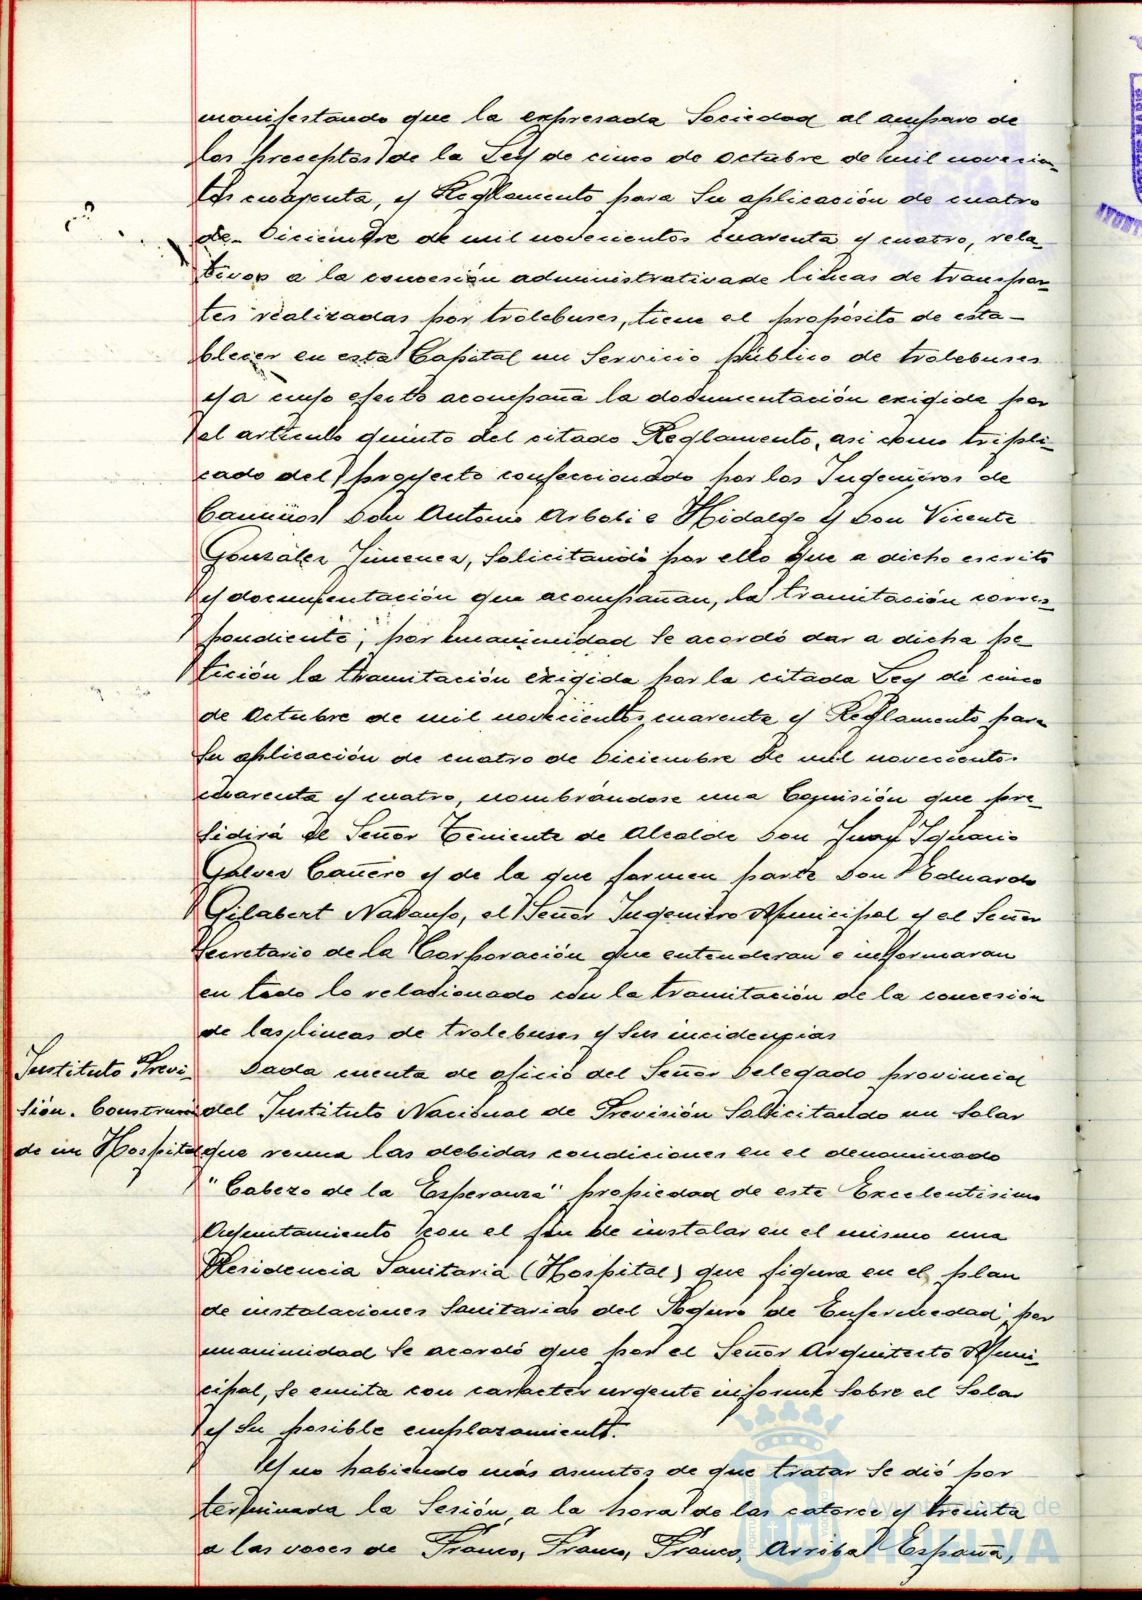 manifestando que la expresada Sociedad al amparo de
los preceptos de la Ley de cinco de Octubre de mil novecien-
tos cuarenta, y Reglamento para su aplicación de cuatro
de Diciembre de mil novecientos cuarenta y cuatro, rela-
tivos a la concesión administrativa de lineas de transpor-
tes realizadas por trolebuses, tiene el propósito de esta-
blecer en esta Capital un Servicio público de trolebuses
y a cuyo efecto acompaña la documentación exigida por
el articulo quinto del citado Reglamento, asi como tripli-
cado del proyecto confeccionado por los Ingenieros de
Caminos Don Antonio Arboli e Hidalgo y Don Vicente
González Jimenez, Solicitando por ello que a dicho escrito
y documentación que acompañan, la tramitación corres-
pondiente; por unanimidad se acordó dar a dicha pe-
tición la tramitación exigida por la citada Ley de cinco
de Octubre de mil novecientos cuarenta y Reglamento para
su aplicación de cuatro de Diciembre de mil novecientos
cuarenta y cuatro, nombrándose una Comisión que pre-
sidirá el Señor Teniente de Alcalde Don Juan Ignacio
Galvez Cañero y de la que formen parte Don Eduardo
Gilabert, el Señor Ingeniero Municipal y el Señor
Secretario de la Corporación que entenderan e informaran
en todo lo relacionado con la tramitación de la concesión
de las lineas de trolebuses y sus incidencias
Instituto Previ- Dada cuenta de oficio del Señor Delegado provincial
sión. Construcn del Instituto Nacional de Previsión Solicitando un Solar
de un Hospital que reuna las debidas condiciones en el denominado
"Cabezo de la Esperanza" propiedad de este Excelentisimo
Ayuntamiento con el fin de instalar en el mismo una
Residencia Sanitaria (Hospital) que figura en el plan
de instalaciones Sanitarias del Seguro de Enfermedad, por
unanimidad se acordó que por el Señor Arquitecto Muni-
cipal, se emita con caracter urgente informe sobre el Solar
y su posible emplazamiento.
Y no habiendo más asuntos de que tratar se dió por
terminada la Sesión, a la hora de las catorce y treinta
a las voces de Franco, Franco, Franco, Arriba España,
Ayuntamiento de
HUELVA